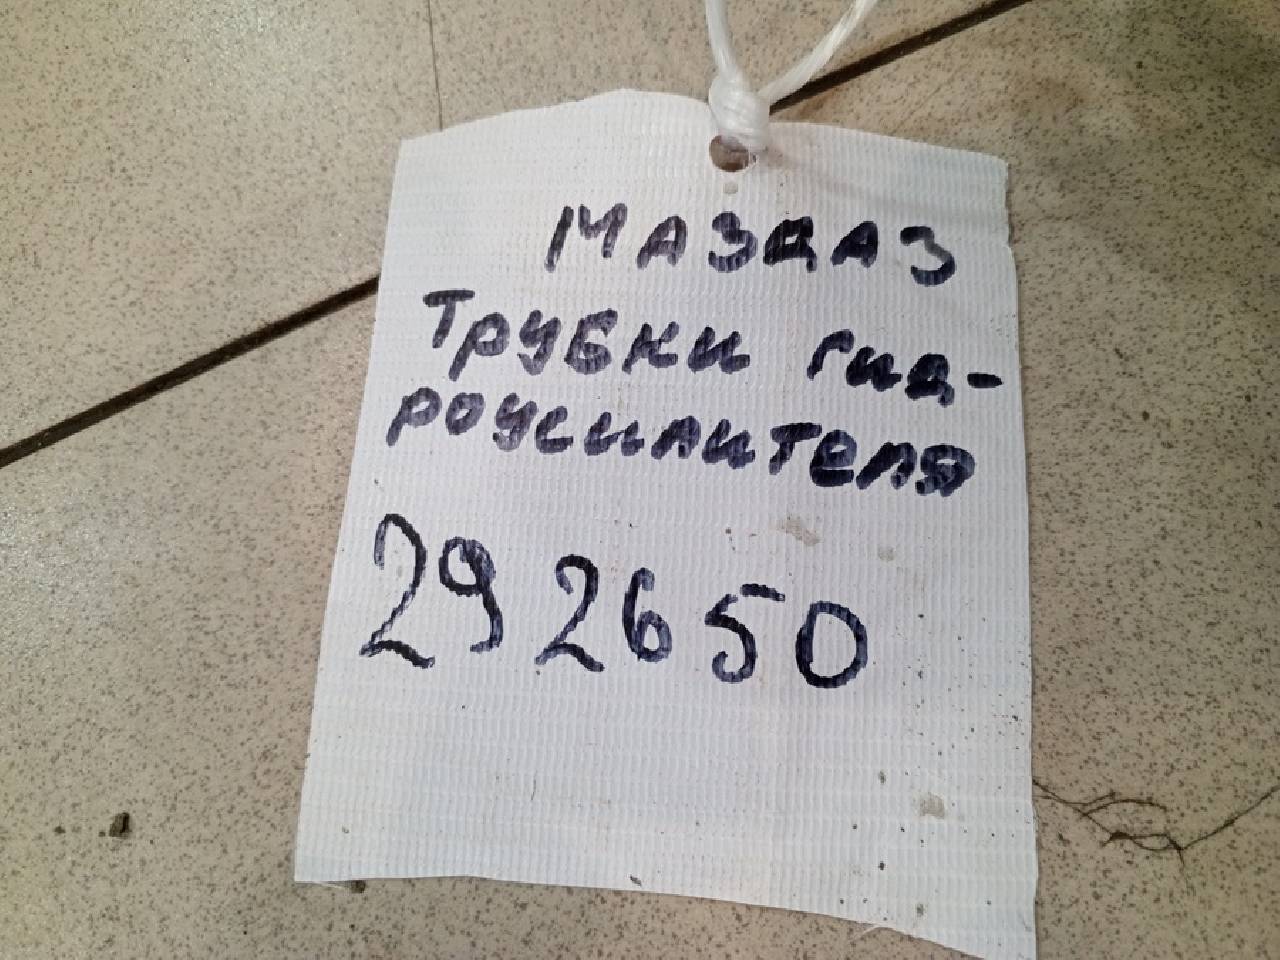 МАЗДА3
Трубки гид-
роусилителя
292650